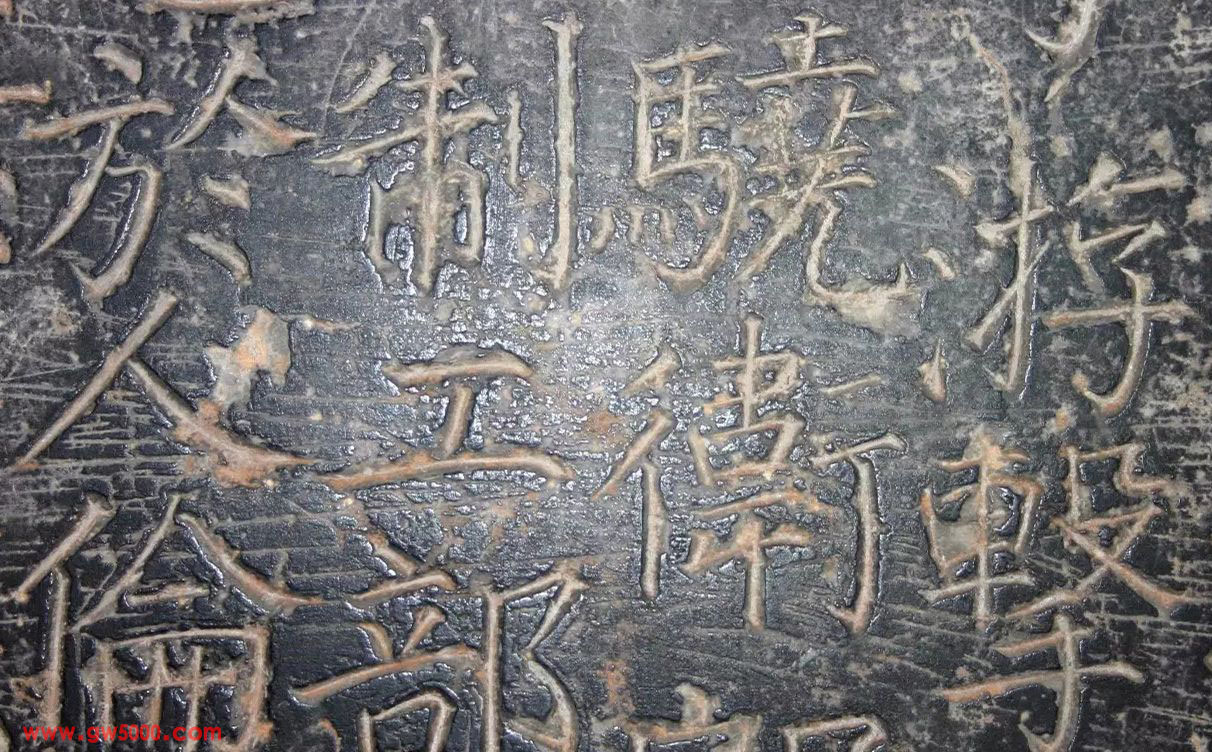 游擊
驍衛
制工部
於人倫
www.gw5000.com